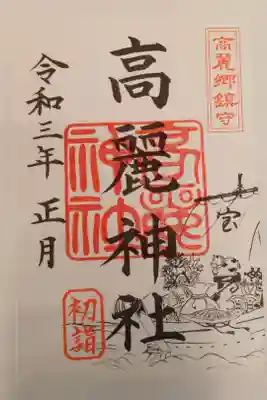 高麗郷鎮守
高麗神社
高麗神社
宝
令和三年 正月
初詣